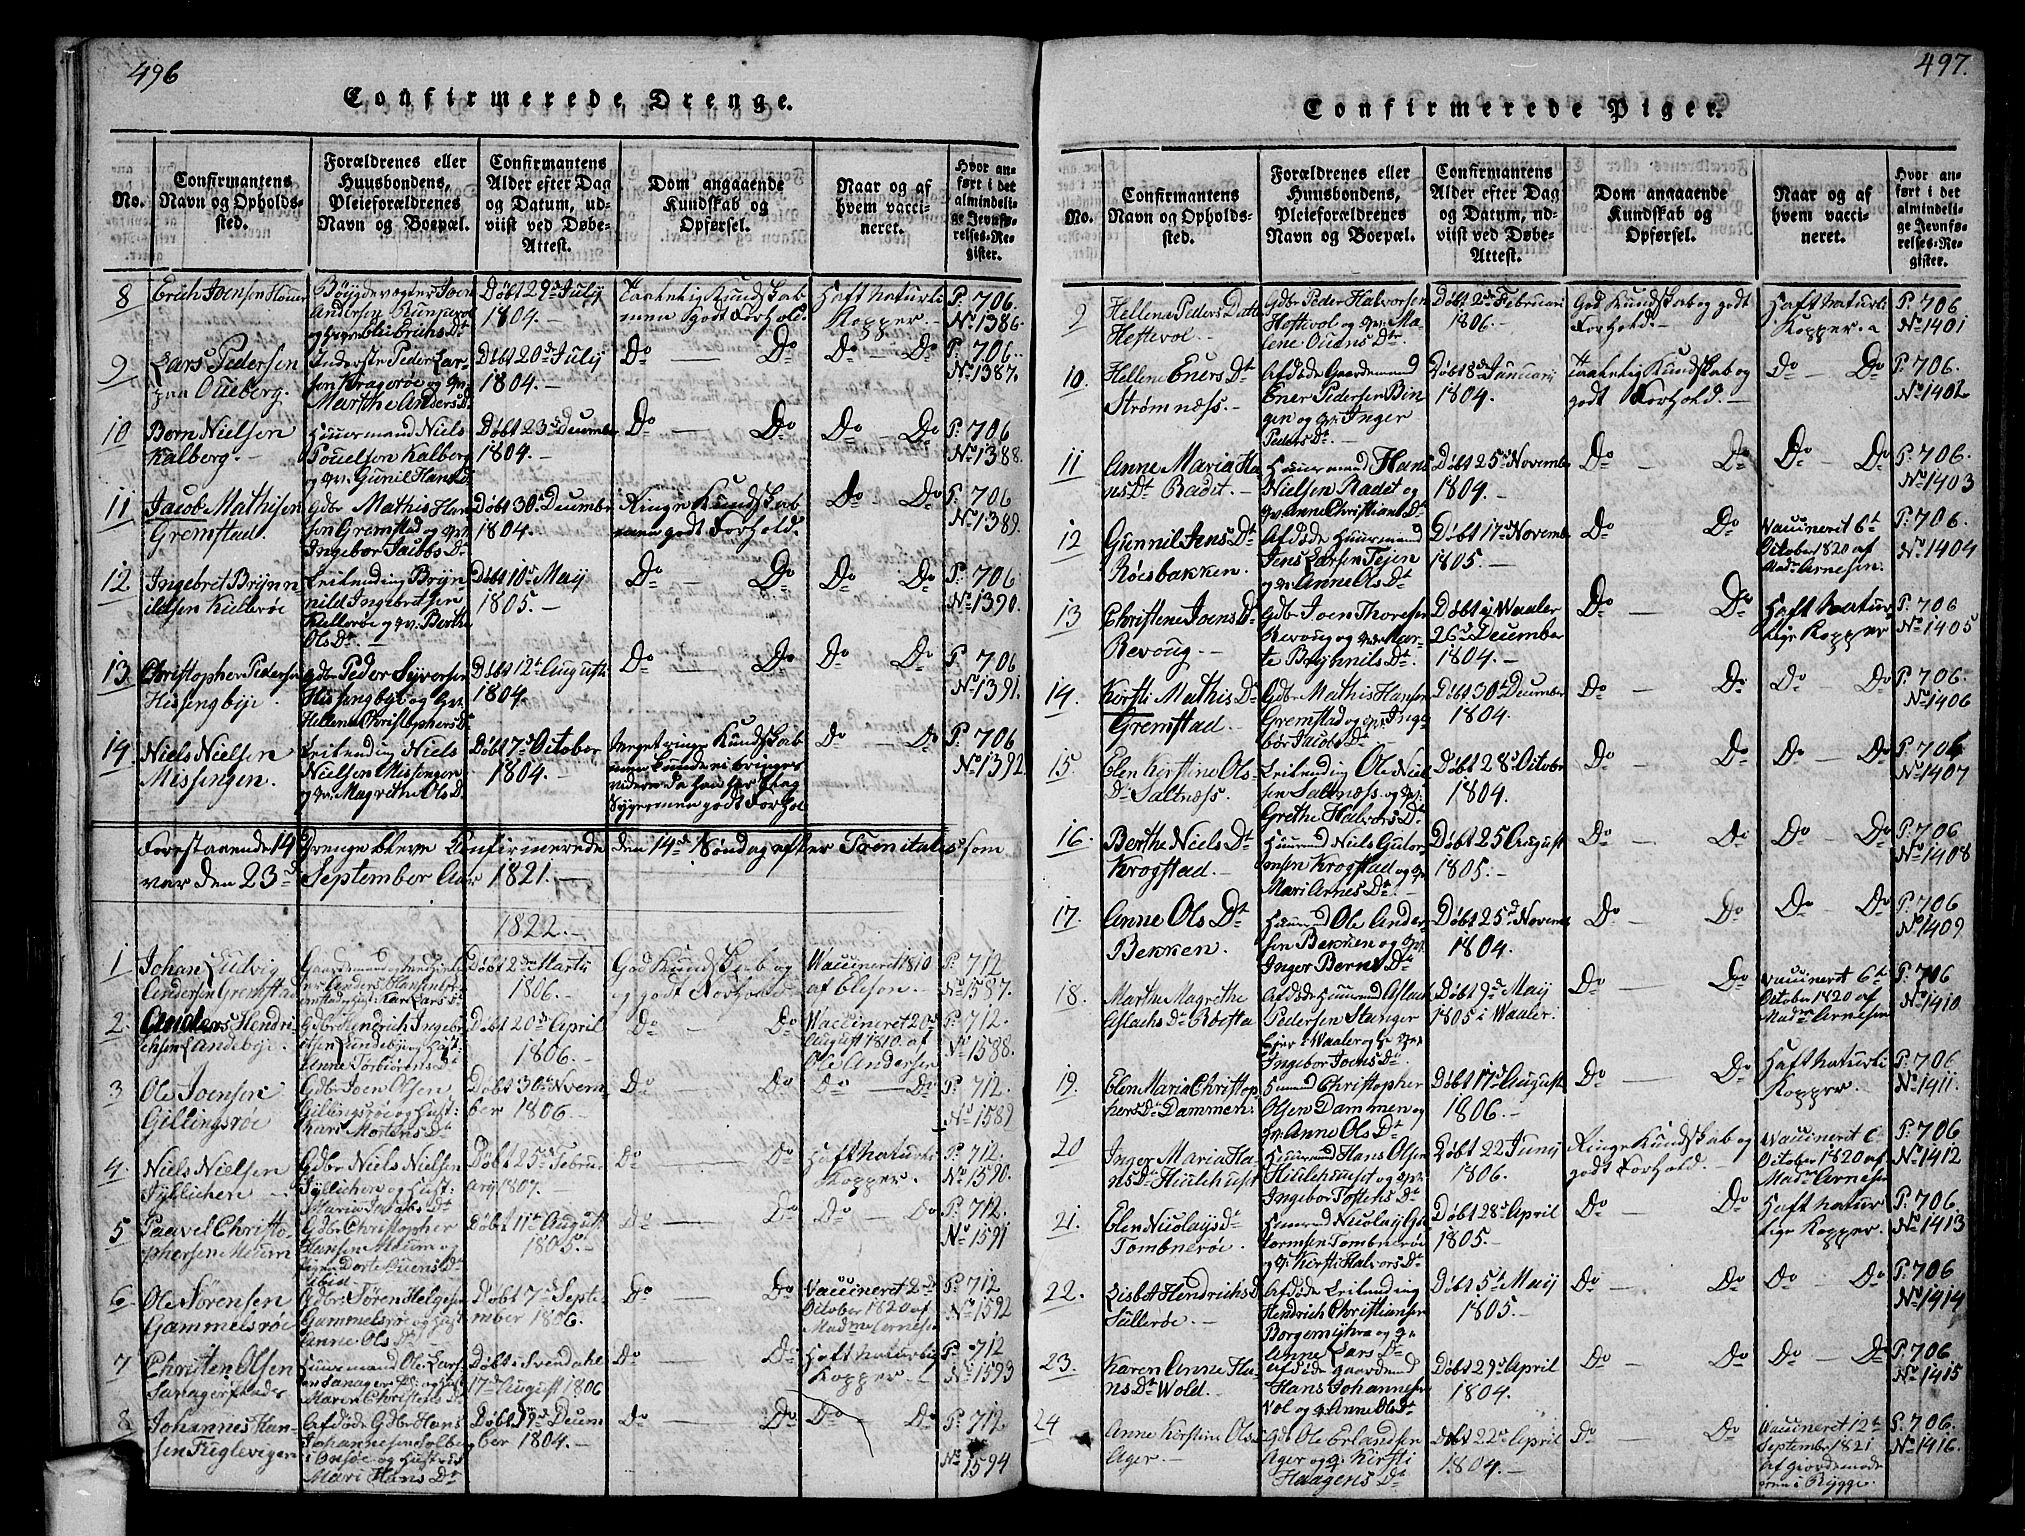 496
Confirmerede Drenge.
No.
Confirmantens
Navn og Opholds-
sted.
Forældrenes eller
Huusbondens,
Pleieforældrenes
Navn og Boepæl.
Confirmantens
Alder efter Dag
og Datum, ud-
viist ved Døbe-
Attest.
Dom angaaende
Kundskab og
Opførsel.
Naar og af
hvem vacci-
neret.
Hvor an-
ført i det
almindeli-
ge Jevnfø-
relses-Re-
gister.
8
Erich Joensen
Andersen
Døbt 29de July
1804.
godt Forhold.
Haft Naturli
Kopper.
P. 706.
No 1386.
9
Lars Pedersen
paa Oueberg.
Inderste Peder Lar-
sen Kragerøe og Qv.
Marthe Anders Dt
Døbt 20de July
1804.
Do — Do
Do — Do
P. 706.
No 1387.
10
Bern Nielsen
Kalberg.
Huusmand Niels
Poüelsen Kalberg
og qv. Gunil Hans Dt
Døbt 23de Decembr
1804.
Do — Do
Do — Do
P. 706
No 1388.
11
Jacob Mathisen
Gremstad.
Gdbr Mathis Han-
sen Gremstad og qv.
Ingebor Jacobs Dt
Døbt 30de Decembr
1804.
Ringe Kundskab
men godt Forhold.
Do — Do
P. 706
No 1389.
12
Ingebret Brÿn-
ildsen Kullerøe
Leilending Brÿn
nild Ingebretsen
Kullerøe og qv. Berthe
Ols Dt
Døbt 10de Maÿ
1805.
Do — Do
Do Do
P. 706
No 1390.
13.
Christopher Pedersen
Hissingbÿe.
Gdbr Peder Sÿversen
Hissingbÿe og qv.
Hellene Christophers Dt
Døbt 12te Augusti
1804.
Do Do
Do Do
P. 706
No 1391.
14.
Niels Nielsen
Missingen.
Leilending Niels
Nielsen Missingen
og qv. Magrethe Ols Dt
Døbt 7de October
1804.
Meget ringe Kundskab
Do — Do
P. 706
No 1392
Forestaaende 14 Drenge bleve Confirmerede den 14de Søndag efter Trinitatis som
var den 23de September Aar 1821.
1822.
1
Johan Ludvig
Andersen Gremstad
Døbt 2den Martÿ
1806.
God Kundskab og
godt Forhold
Vaccineret 1810
af Elieson.
P. 712.
No 1587.
2.
Anders Hendri
chsen Sandebÿe.
Gdbr Hendrich Ingebr
Anne Torbiørens Dt
Døbt 20de April
1806.
Do — Do
Vaccineret 20de
August 1810 af
Ole Andersen
P. 712.
No 1588.
3
Ole Joensen
Gillingsrøe
Gdbr Joen Olsen
Gillingsrøe og Hust:
Kari Mortens Dt
Døbt 30te Novem-
ber 1806.
Do Do
Do — Do
P. 712.
No 1589
4
Niels Nielsen
Gdbr Niels Nielsen
Døbt 25de Febru-
arÿ 1807.
Do — Do
Haft Naturli
Kopper.
P. 712.
No 1590.
5
Paavel Christo-
phersen
Gdbr Christopher
Hansen
Dorte Ouens Dt
ibid.
Døbt 11te Augusti
1805.
Do — Do
Do — Do
P. 712.
No 1591
6
Ole Sørensen
Gammelsrøe
Gdbr Søren Helgesen
Gammelsrøe og Hust
Anne Ols Dt
Døbt 7de Septe-
mber 1806.
Do — Do
Vaccineret 2den
October 1820 af
Madme Arnesen
P. 712
No 1592
7
Christen Olsen
Huusmand Ole Lars-
Maren Christens Dt
Døbt i Svendahl
17de August 1806
Do — Do
Haft Naturlig
Kopper.
P. 712
No 1593
8
Johannes Han-
sen Fuglevigen
Afdøde Gdbr Hans
Johannesen Solberg
Mari Hans Dt
Døbt 9de Decem-
ber 1804.
Do — Do
Do — Do
P. 712
No 1594
497.
Confirmerede Piger.
No.
Confirmantens
Navn og Opholds-
sted.
Forældrenes eller
Huusbondens,
Pleieforældrenes
Navn og Boepæl.
Confirmantens
Alder efter Dag
og Datum, ud-
viist ved Døbe-
Attest.
Dom angaaende
Kundskab og
Opførsel.
Naar og af
hvem vacci-
neret.
Hvor an-
ført i det
almindeli-
ge Jevnfø-
relses-Re-
gister.
9
Hellene Peders Datt
Heftevol.
Gdbr Peder Halvorsen
Heftevol og qv. Ma-
lene Ouens Dtr
Døbt 2de Februari
1806.
God Kundskab og godt
Forhold.
Haft Naturli
Kopper.
P. 706
No 1401
10.
Hellene Eners Dt
Strømnæss.
Afdøde Gaardmand
Ener Pedersen Bin-
gen og qv. Inger
Peders Dt
Døbt 8de Januarÿ
1804.
Taalelig Kundskab og
godt Forhold.
Do — Do
P. 706.
No 1402
11
Anne Maria Ha-
ns Dt Radet.
Huusmand Hans
Nielsen Radet og
qv. Anne Christians Dt
Døbt 25de Novemb
1804.
Do Do
Do — Do
P. 706.
No 1403
12
Gunnil Jens Dt
Røesbakken.
Afdøde Huusmand
Jens Larsen Tejen
og qv. Anne Ols Dt
Døbt 17de Novemb
1805.
Do Do
Vaccineret 6te
October 1820 af
Madme Arnesen.
P. 706.
No 1404
13
Christene Joens Dt
Revoug.
Gdbr Joen Thoresen
Revoug og qv. Mar-
te Brÿnnils Dt
Døbt i Waaler
26de December
1804.
Do — Do
Haft Natur
lige Kopper
P. 706
No 1405
14.
Kirsti Mathis Dt
Gremstad.
Gdbr Mathis Hansen
Gremstad og qv. Inge
bør Jacobs Dt
Døbt 30te December
1804.
Do — Do
Do Do
P. 706.
No 1406
15
Elen Kirstine Ols
Dt Saltnæss.
Leilending Ole Niel-
sen Saltnæss og qv.
Grethe Halvors Dt
Døbt 28de Octobr
1804.
Do — Do
Do — Do
P. 706
No 1407
16.
Berthe Niels Dt
Krogstad.
Huusmd Niels Gutor-
msen Krogstad og qv.
Mari Arnes Dt
Døbt 25 August
1805.
Do — Do
Do — Do
P. 706
No 1408
17.
Anne Ols Dt
Bekken.
Huusmd Ole Ander-
sen Bekken og qv.
Inger Berns Dt
Døbt 25de Novem
1804.
Do — Do
Do — Do
P. 706
No 1409
18.
Marthe Magrethe
Aslachs Dt Roesta
Afdøde Huusmd Aslach
Pedersen Stanger
Ingebor Joens Dt
Døbt 9de Maÿ
1805 i Waaler.
Do — Do
Vaccineret 6te
October 1820 af
Madme Arnesen
P. 706
No 1410.
19.
Elen Maria Christop-
hers Dt Dammen.
Huusmd Christopher
Olsen Dammen og
qv. Anne Ols Dt
Døbt 17de August
1806.
Do — Do
Haft Naturli
Kopper.
P. 706.
No 1411.
20
Inger Maria Ha-
ns Dt
Huusmd Hans Olsen
Ingebor Tostens Dt
Døbt 22 Junÿ
1806.
Ringe Kundskab og
godt Forhold.
Vaccineret 6te
October 1820 af
Madme Arnesen
P. 706
No 1412
21.
Elen Nicolaÿs Dt
Tombnerøe.
Huusmd Nicolaÿ Gut-
tormsen Tombnerøe
og qv. Kirsti Halvors Dt
Døbt 28de April
1805.
Do Do
Haft Natur
lige Kopper.
P. 706
No 1413
22.
Lisbet Hendrichs D
Sullerøe.
Afdøde Leilending
Hendrich Christiansen
Borgemÿhra og qv.
Anne Lars Dt
Døbt 5te Maÿ
1805.
Do — Do
Do — Do
P. 706
No 1414
23.
Karen Anne Ha-
ns Dt Wold.
Afdøde Gaardmd
Hans Johannesen
Vol og qv. Anne Ols Dt
Døbt 29de April
1804.
Do — Do
Do — Do
P. 706
No 1415
24
Anne Kirstine Ols
Ager.
Gdbr Ole Erlandsen
Ager og q. Kirsti
Haagens Dt
Døbt 22de April
1804.
Do — Do
Vaccineret 12te
September 1821
af Giordemode
ren i Rÿgge.
P. 706.
No 1416.